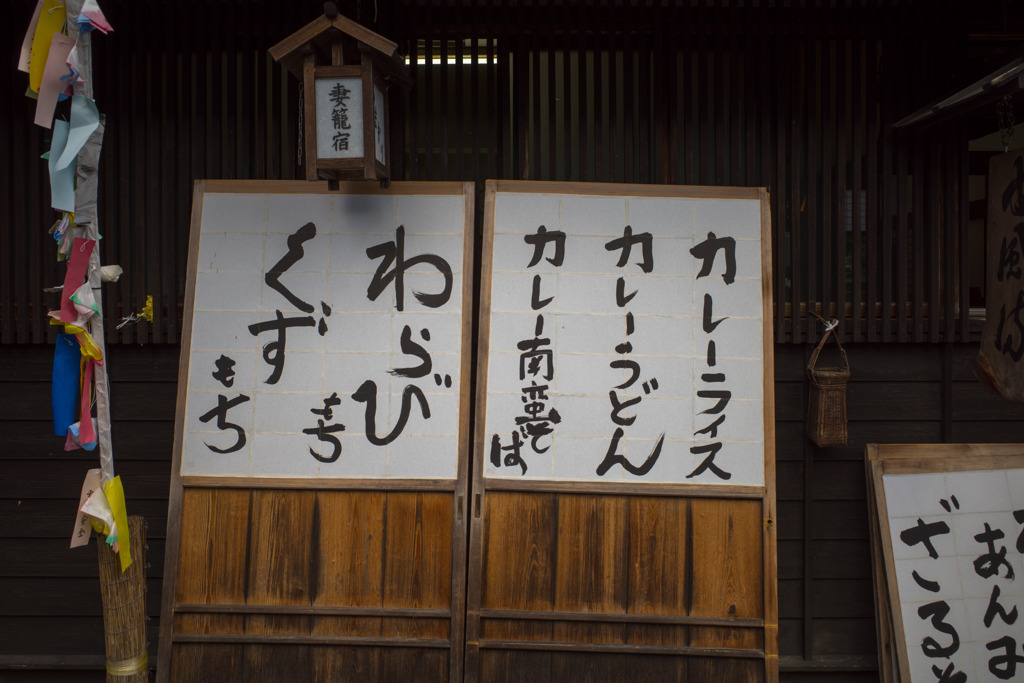 妻籠宿
わらびもち
くずもち
カレーライス
カレーうどん
カレー南蛮そば
あん
ざるそ